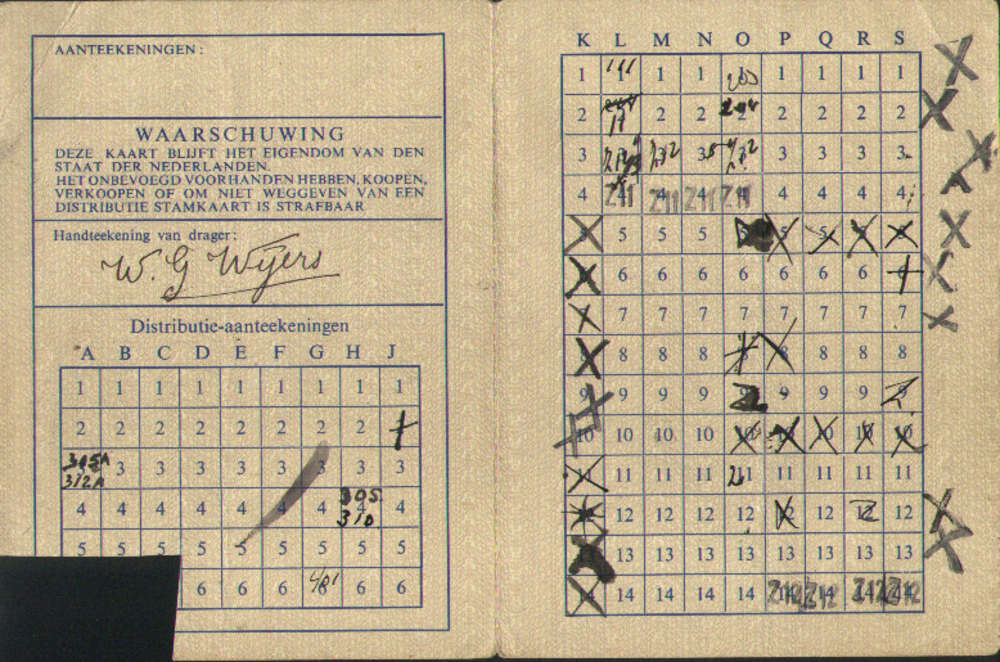 AANTEEKENINGEN :
WAARSCHUWING
DEZE KAART BLIJFT HET EIGENDOM VAN DEN
STAAT DER NEDERLANDEN.
HET ONBEVOEGD VOORHANDEN HEBBEN, KOOPEN,
VERKOOPEN OF OM NIET WEGGEVEN VAN EEN
DISTRIBUTIE STAMKAART IS STRAFBAAR
Handteekening van drager :
W. G Wijers
Distributie-aanteekeningen
A B C D E F G H J
1 1 1 1 1 1 1 1 1
2 2 2 2 2 2 2 2
305A 3 3 3 3 3 3 3 3
312A
4 4 4 4 4 4 4 305. 4
310.
5 5 5 5 5 5 5 5 5
6 6 6 6 6
K L M N O P Q R S
1 1 1 1 1 1 1 1
2 2 2 2 2 2 2
3 3 3 3 3 3
4 Z11 Z11 Z11 Z11 4 4 4 4
5 5 5 5 5
6 6 6 6 6 6 6
7 7 7 7 7 7 7 7 7
8 8 8 8 8 8 8
9 9 9 9 9 9 9
10 10 10 10 10 10 10 10 10
11 11 11 11 11 11 11 11
12 12 12 12 12 12
13 13 13 13 13 13 13 13
14 14 14 14 14 Z12 Z12 Z12 Z12